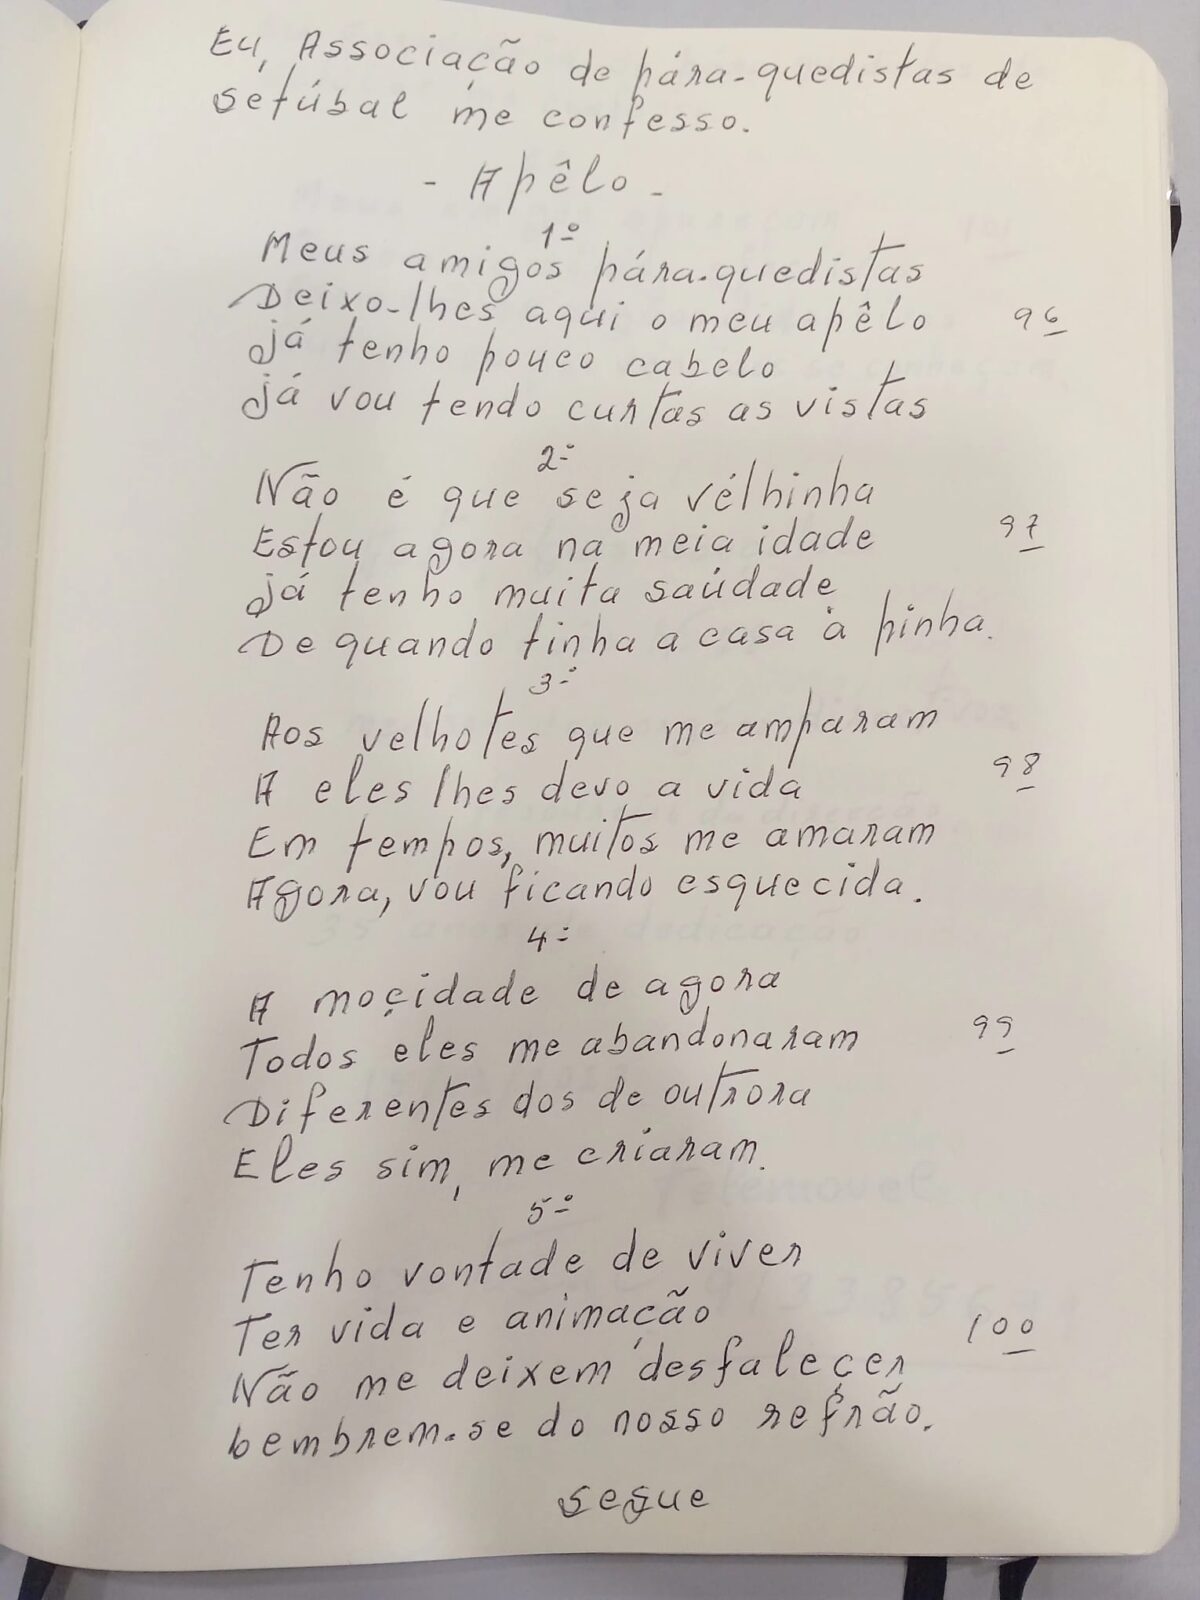 Eu, Associação de pára-quedistas de
setúbal me confesso.
- Apêlo -
1º
Meus amigos pára-quedistas
Deixo-lhes aqui o meu apêlo 96
já tenho pouco cabelo
já vou tendo curtas as vistas
2º
Não é que seja vélhinha
Estou agora na meia idade 97
já tenho muita saúdade
De quando tinha a casa à pinha.
3º
Aos velhotes que me amparam
A eles lhes devo a vida 98
Em tempos, muitos me amaram
Agora, vou ficando esquecida.
4º
A moçidade de agora
Todos eles me abandonaram 99
Diferentes dos de outrora
Eles sim, me criaram.
5º
Tenho vontade de viver
Ter vida e animação 100
Não me deixem desfaleçer
Lembrem-se do nosso refrão.
segue